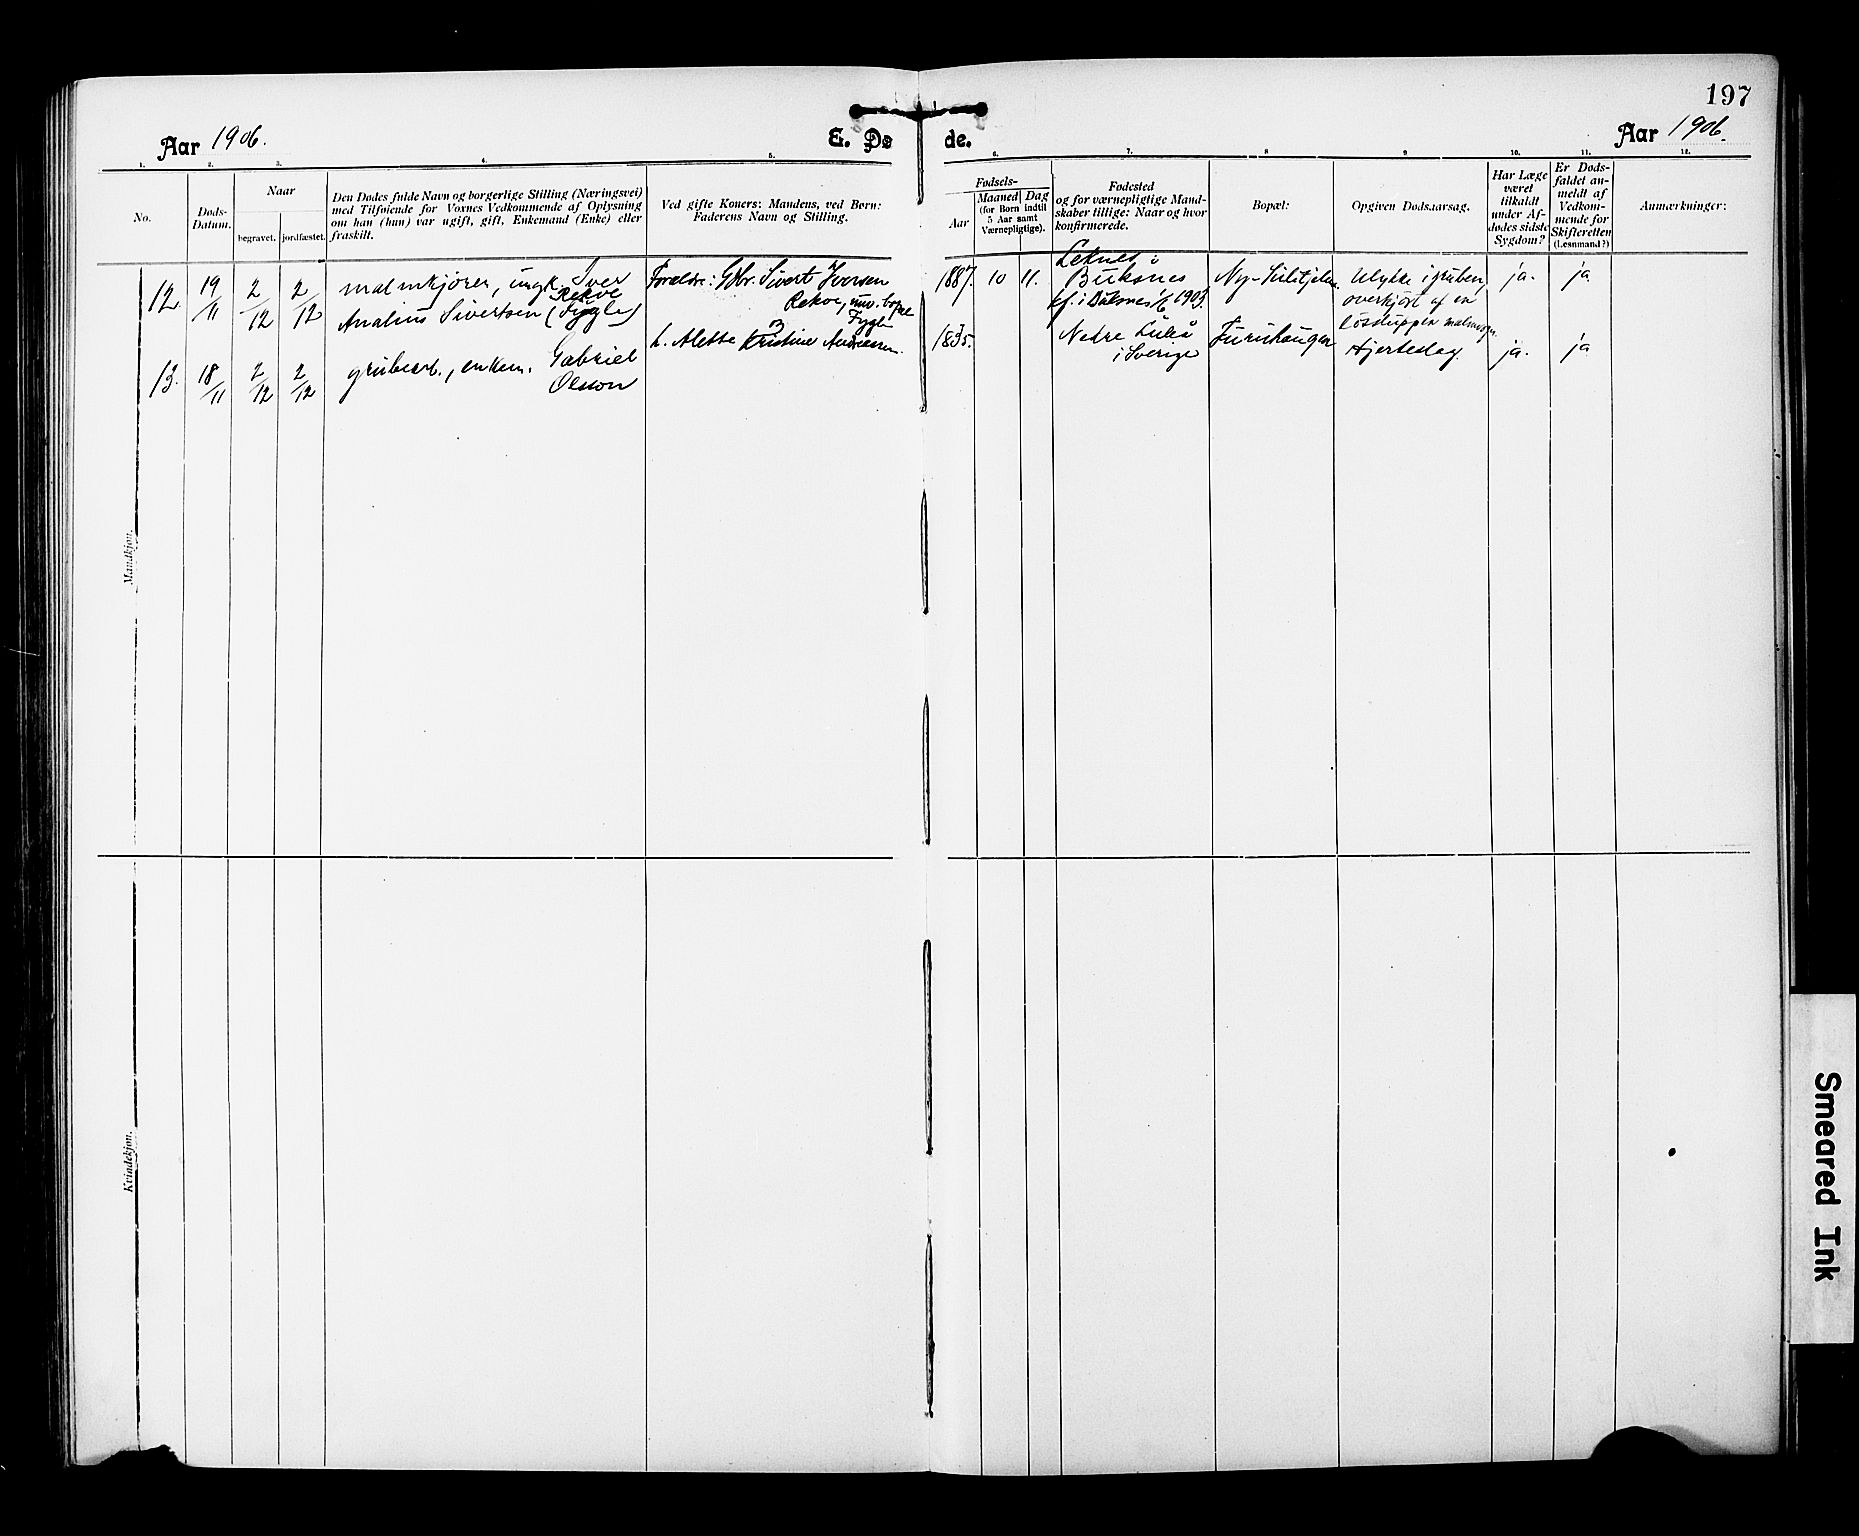 197
Aar 1906.
E. Dø de.
Aar 1906.
1. 2. 3. 4. 5. 6. 7. 8 9 10. 11. 12.
No.
Døds-
Datum.
Naar
begravet. jordfæstet.
Den Dødes fulde Navn og borgerlige Stilling (Næringsvei)
med Tilføiende for Voxnes Vedkommende af Oplysning
om han (hun) var ugift, gift, Enkemand (Enke) eller
fraskilt.
Ved gifte Koner: Mandens, ved Børn:
Faderens Navn og Stilling.
Fødsels-
Aar
Maaned Dag
(for Børn indtil
5 Aar samt
Værnepligtige).
Fødested
og for værnepligtige Mand-
skaber tillige: Naar og hvor
konfirmerede.
Bopæl:
Opgiven Dødsaarsag.
Har Læge
været
tilkaldt
under Af-
dødes sidste
Sygdom?
Er Døds-
faldet an-
meldt af
Vedkom-
mende for
Skifteretten
(Lesnmand?)
Anmærkninger:
Mandkjøn.
12. 19/11 2/12 2/12
malmkjører, ungk.
Analius Sivertsen
Rekve
(Fygle)
Forældre: Gbr. Sivert Iversen
Rekve, nuv. bopæl
Fygle
h. Alette Kristine Andresen.
1887. 10 11.
Leknes i
Buksnes
kf. i Buksnes 1/6 1903.
Ny-Sulitjelma
Ulykke i gruben,
overkjørt af en
løssluppen malmvogn.
ja.
ja
13. 18/11 2/12 2/12
grubearb., enkem. Gabriel
Olsson
1835.
Nedre Luleå
i Sverige
Furuhaugen
Hjerteslag.
ja.
ja
Kvindekjøn.
Smeared Ink